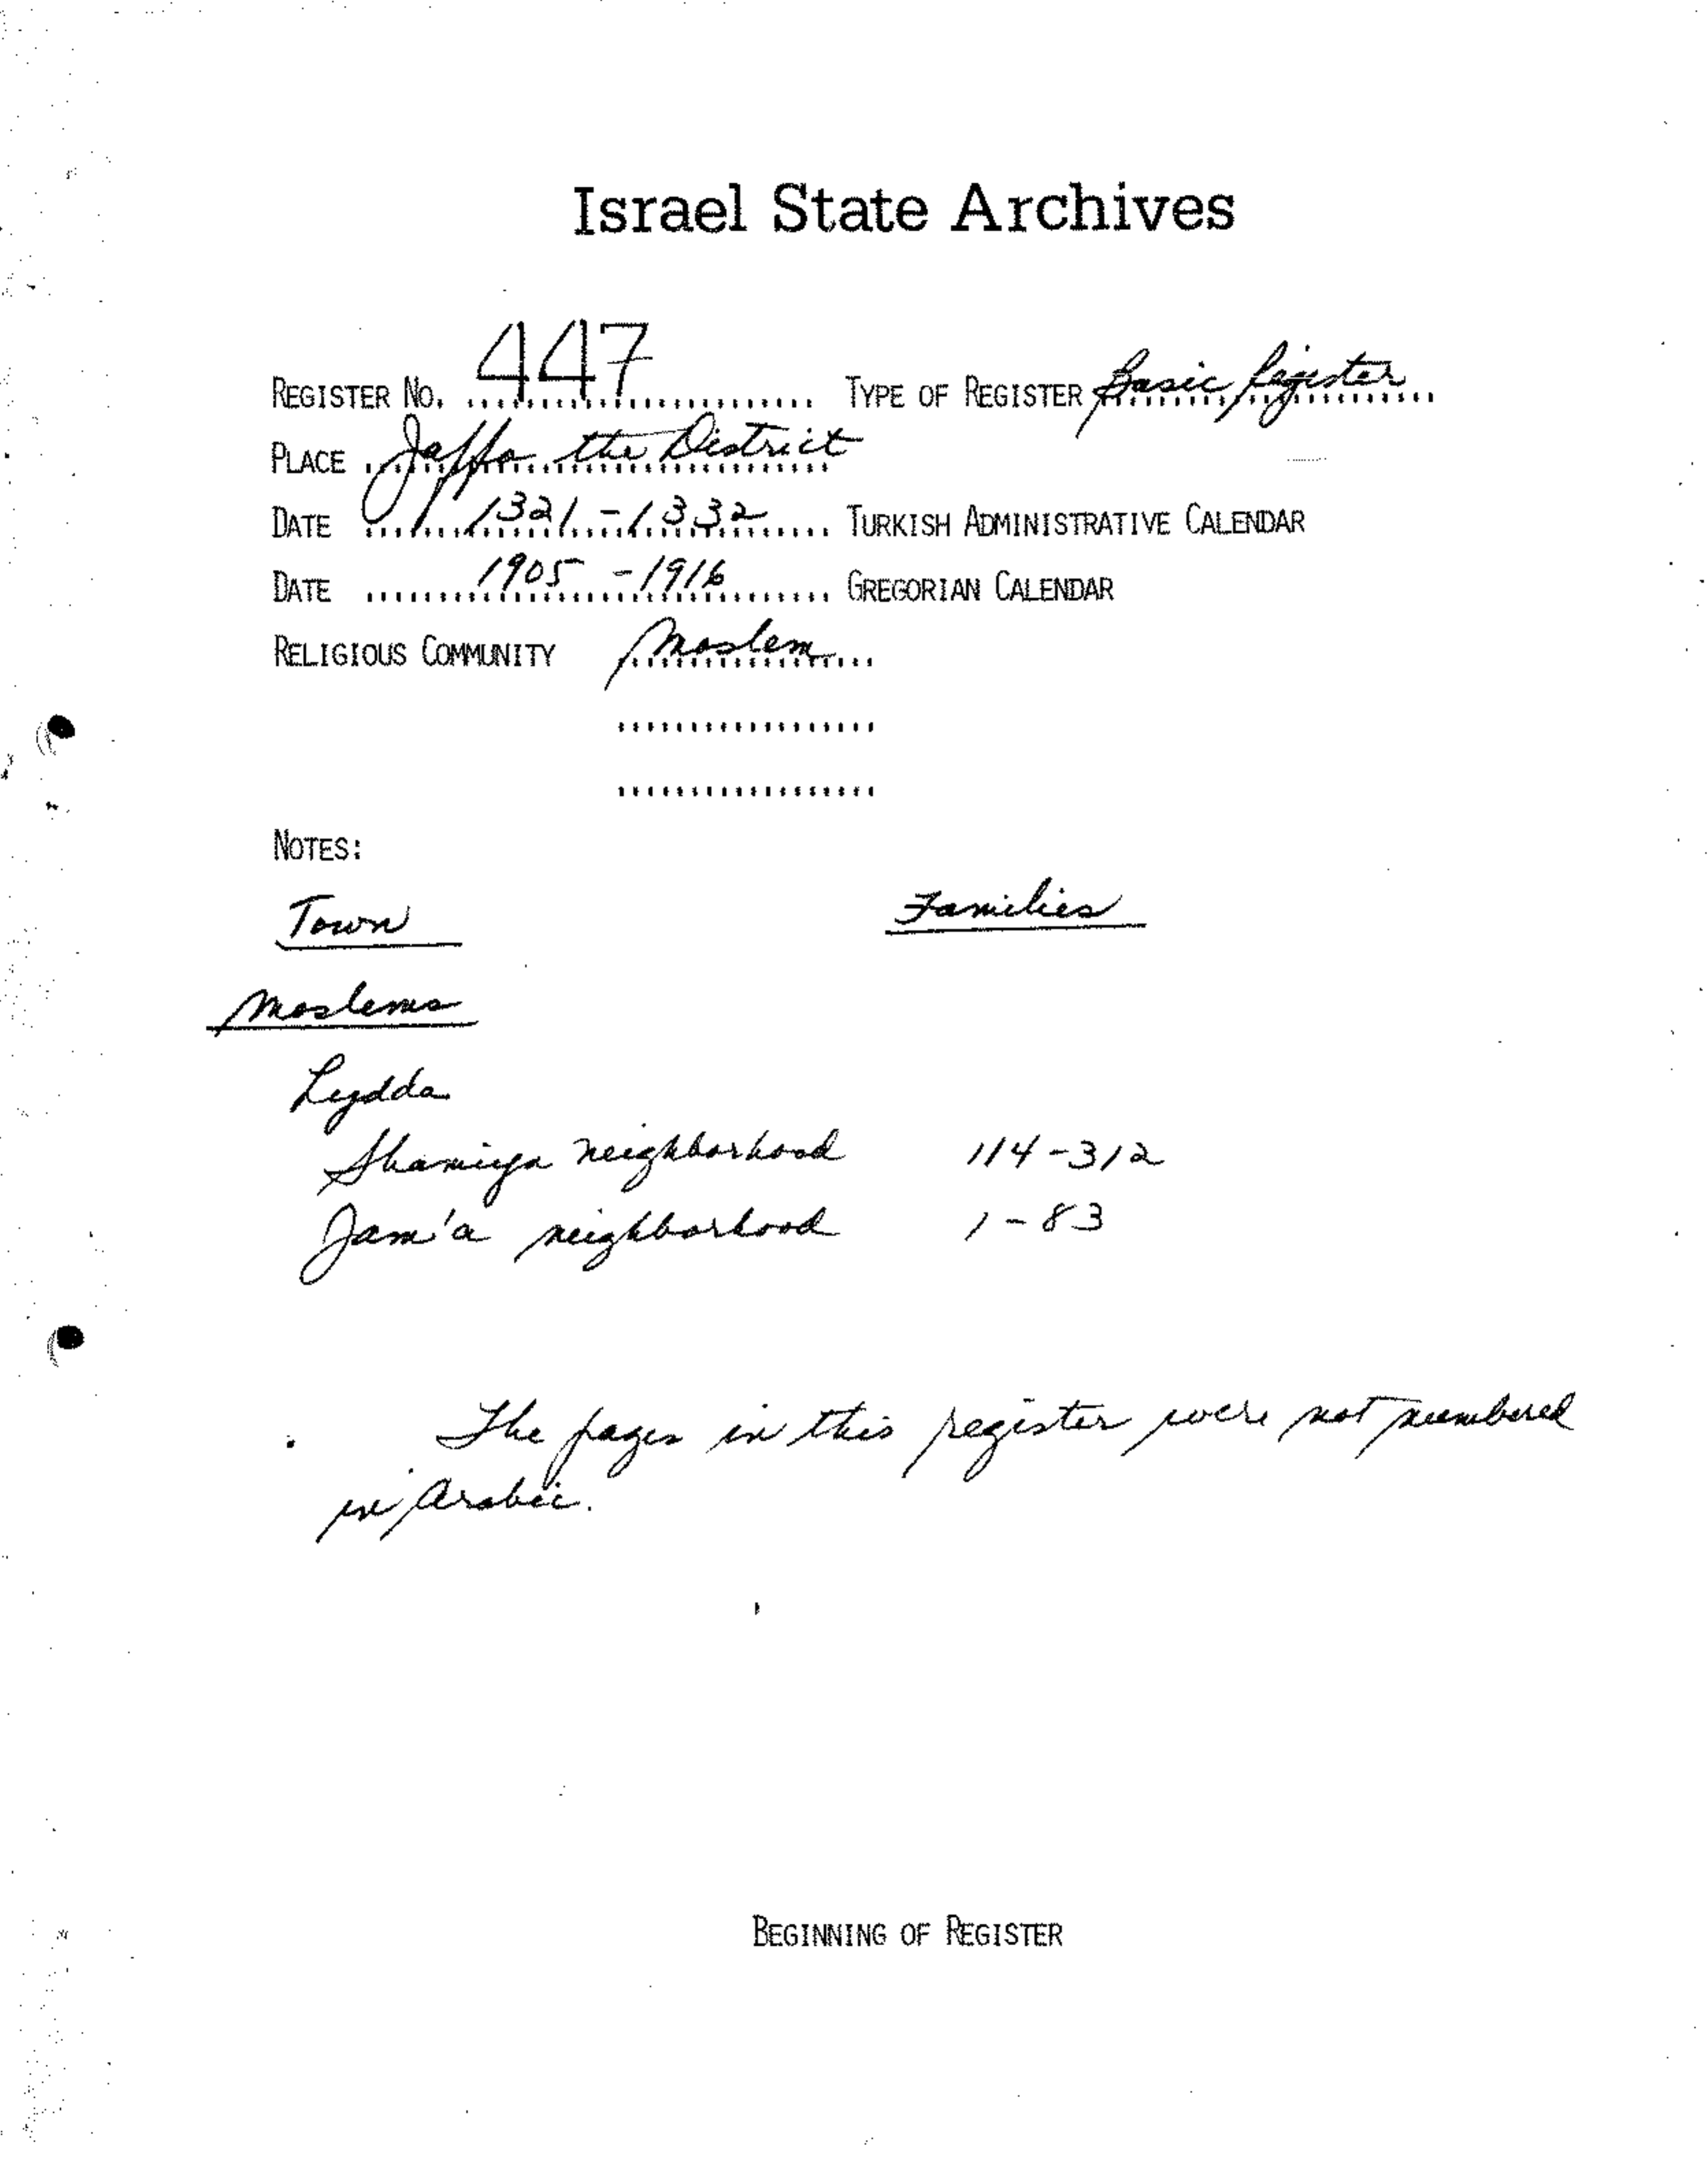 Israel State Archives
REGISTER No. 447 TYPE OF REGISTER Basic Register
PLACE Jaffa the District
DATE 1321-1332 TURKISH ADMINISTRATIVE CALENDAR
DATE 1905-1916 GREGORIAN CALENDAR
RELIGIOUS COMMUNITY Moslem
NOTES:
Town Families
Moslems
Lydda
Shamiya neighborhood 114-312
Jam'a neighborhood 1-83
The pages in this register were not numbered
in Arabic.
BEGINNING OF REGISTER